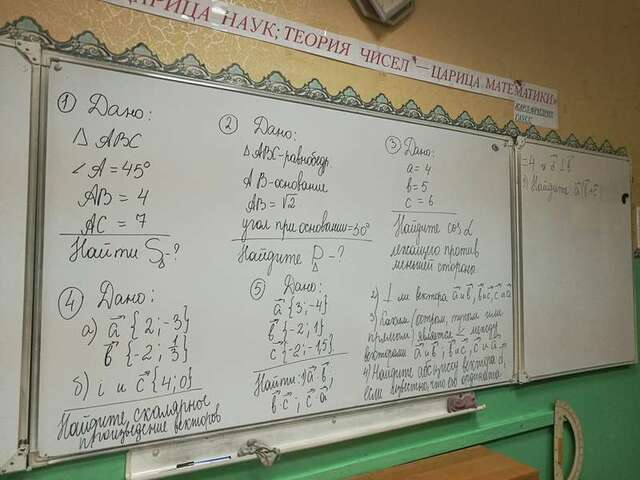 ЦАРИЦА НАУК; ТЕОРИЯ ЧИСЕЛ — ЦАРИЦА МАТЕМАТИКИ»
① Дано:
△ ABC
∠A = 45°
AB = 4
AC = 7
Найти S△ - ?
② Дано:
△ ABC - равнобедр.
AB - основание
AB = √2
угол при основании = 30°
Найдите P△ - ?
③ Дано:
a = 4
b = 5
c = 6
Найдите cos α
лежащего против
меньшей стороны.
④ Дано:
а) a⃗ {2; -3}
b⃗ {-2; 3}
б) i и c⃗ {4; 0}
Найдите скалярное
произведение векторов
⑤ Дано:
a⃗ {3; -4}
b⃗ {-2; 1}
c⃗ {-2; -1,5}
Найти: 1) a⃗ · b⃗;
b⃗ · c⃗; c⃗ · a⃗,
2) ⊥ ли вектора a⃗ и b⃗, b⃗ и c⃗, c⃗ и a⃗
3) Каким (острым, тупым или
прямым) является ∠ между
векторами a⃗ и b⃗; b⃗ и c⃗, c⃗ и a⃗.
4) Найдите абсциссу вектора d⃗,
если известно, что его ордината
= 4 и d⃗ ⊥ b⃗
Найдите